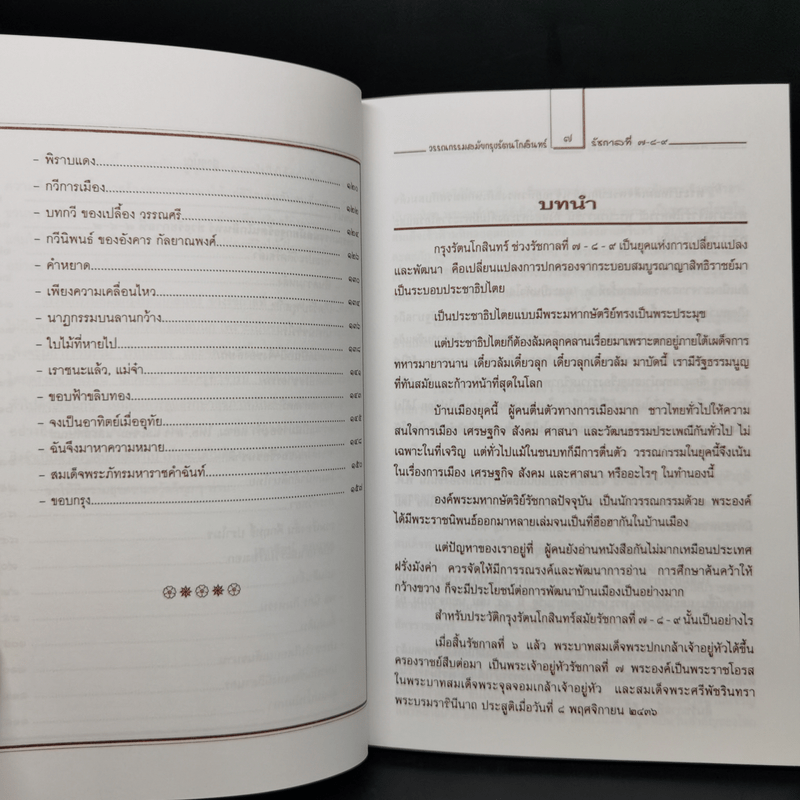 - พิราบแดง........ ๑๒๐
- กวีการเมือง........ ๑๒๒
- บทกวี ของเปลื้อง วรรณศรี........ ๑๒๔
- กวีนิพนธ์ ของอังคาร กัลยาณพงศ์........ ๑๒๖
- คำหยาด........
- เพียงความเคลื่อนไหว........ ๑๓๔
- นาฏกรรมบนลานกว้าง........ ๑๓๖
- ใบไม้ที่หายไป........ ๑๓๘
- เราชนะแล้ว, แม่จ๋า........ ๑๔๑
- ขอบฟ้าขลิบทอง........
- จงเป็นอาทิตย์เมื่ออุทัย........ ๑๔๕
- ฉันจึงมาหาความหมาย........ ๑๔๘
- สมเด็จพระภัทรมหาราชคำฉันท์........
- ขอบกรุง........
วรรณกรรมสมัยกรุงรัตนโกสินทร์ ๗ รัชกาลที่ ๗-๘-๙
บทนำ
กรุงรัตนโกสินทร์ ช่วงรัชกาลที่ ๗ - ๘ - ๙ เป็นยุคแห่งการเปลี่ยนแปลง
และพัฒนา คือเปลี่ยนแปลงการปกครองจากระบอบสมบูรณาญาสิทธิราชย์มา
เป็นระบอบประชาธิปไตย
เป็นประชาธิปไตยแบบมีพระมหากษัตริย์ทรงเป็นพระประมุข
แต่ประชาธิปไตยก็ต้องล้มคลุกคลานเรื่อยมาเพราะตกอยู่ภายใต้เผด็จการ
ทหารมายาวนาน เดี๋ยวล้มเดี๋ยวลุก เดี๋ยวลุกเดี๋ยวล้ม มาบัดนี้ เรามีรัฐธรรมนูญ
ที่ทันสมัยและก้าวหน้าที่สุดในโลก
บ้านเมืองยุคนี้ ผู้คนตื่นตัวทางการเมืองมาก ชาวไทยทั่วไปให้ความ
สนใจการเมือง เศรษฐกิจ สังคม ศาสนา และวัฒนธรรมประเพณีกันทั่วไป ไม่
เฉพาะในที่เจริญ แต่ทั่วไปแม้ในชนบทก็มีการตื่นตัว วรรณกรรมในยุคนี้จึงเน้น
ในเรื่องการเมือง เศรษฐกิจ สังคม และศาสนา หรืออะไรๆ ในทำนองนี้
องค์พระมหากษัตริย์รัชกาลปัจจุบัน เป็นนักวรรณกรรมด้วย พระองค์
ได้มีพระราชนิพนธ์ออกมาหลายเล่มจนเป็นที่ฮือฮากันในบ้านเมือง
แต่ปัญหาของเราอยู่ที่ ผู้คนยังอ่านหนังสือกันไม่มากเหมือนประเทศ
ฝรั่งมังค่า ควรจัดให้มีการรณรงค์และพัฒนาการอ่าน การศึกษาค้นคว้าให้
กว้างขวาง ก็จะมีประโยชน์ต่อการพัฒนาบ้านเมืองเป็นอย่างมาก
สำหรับประวัติกรุงรัตนโกสินทร์สมัยรัชกาลที่ ๗-๘-๙ นั้นเป็นอย่างไร
เมื่อสิ้นรัชกาลที่ ๖ แล้ว พระบาทสมเด็จพระปกเกล้าเจ้าอยู่หัวได้ขึ้น
ครองราชย์สืบต่อมา เป็นพระเจ้าอยู่หัวรัชกาลที่ ๗ พระองค์เป็นพระราชโอรส
ในพระบาทสมเด็จพระจุลจอมเกล้าเจ้าอยู่หัว และสมเด็จพระศรีพัชรินทรา
พระบรมราชินีนาถ ประสูติเมื่อวันที่ ๘ พฤศจิกายน ๒๔๓๖